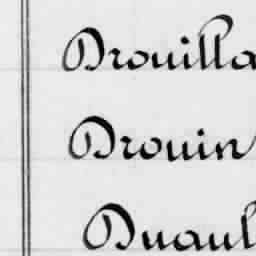 Drouilla
Drouin
Duaul